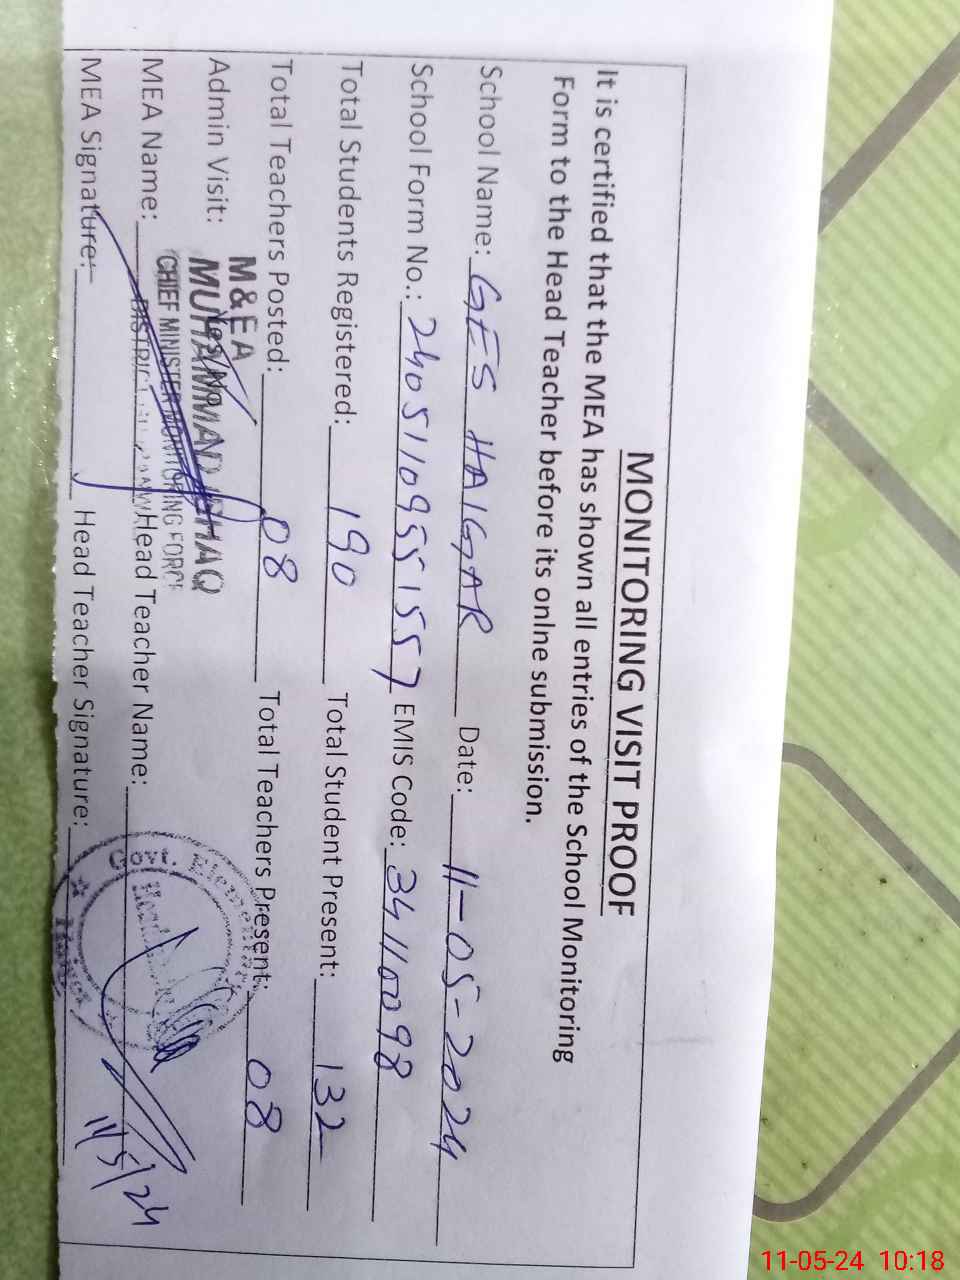 MONITORING VISIT PROOF
It is certified that the MEA has shown all entries of the School Monitoring
Form to the Head Teacher before its onlne submission.
School Name: GES HAIGAR Date: 11-05-2024
School Form No.: 24051109551557 EMIS Code: 34110098
Total Students Registered: 190 Total Student Present: 132
Total Teachers Posted: 08 Total Teachers Present: 08
Admin Visit: Yes/No
M&EA
MUHAMMAD ISHAQ
CHIEF MINISTER MONITORING FORCE
DISTRICT
MEA Name: Head Teacher Name:
MEA Signature: Head Teacher Signature:
Govt. Elementary
Head
11/5/24
11-05-24 10:18